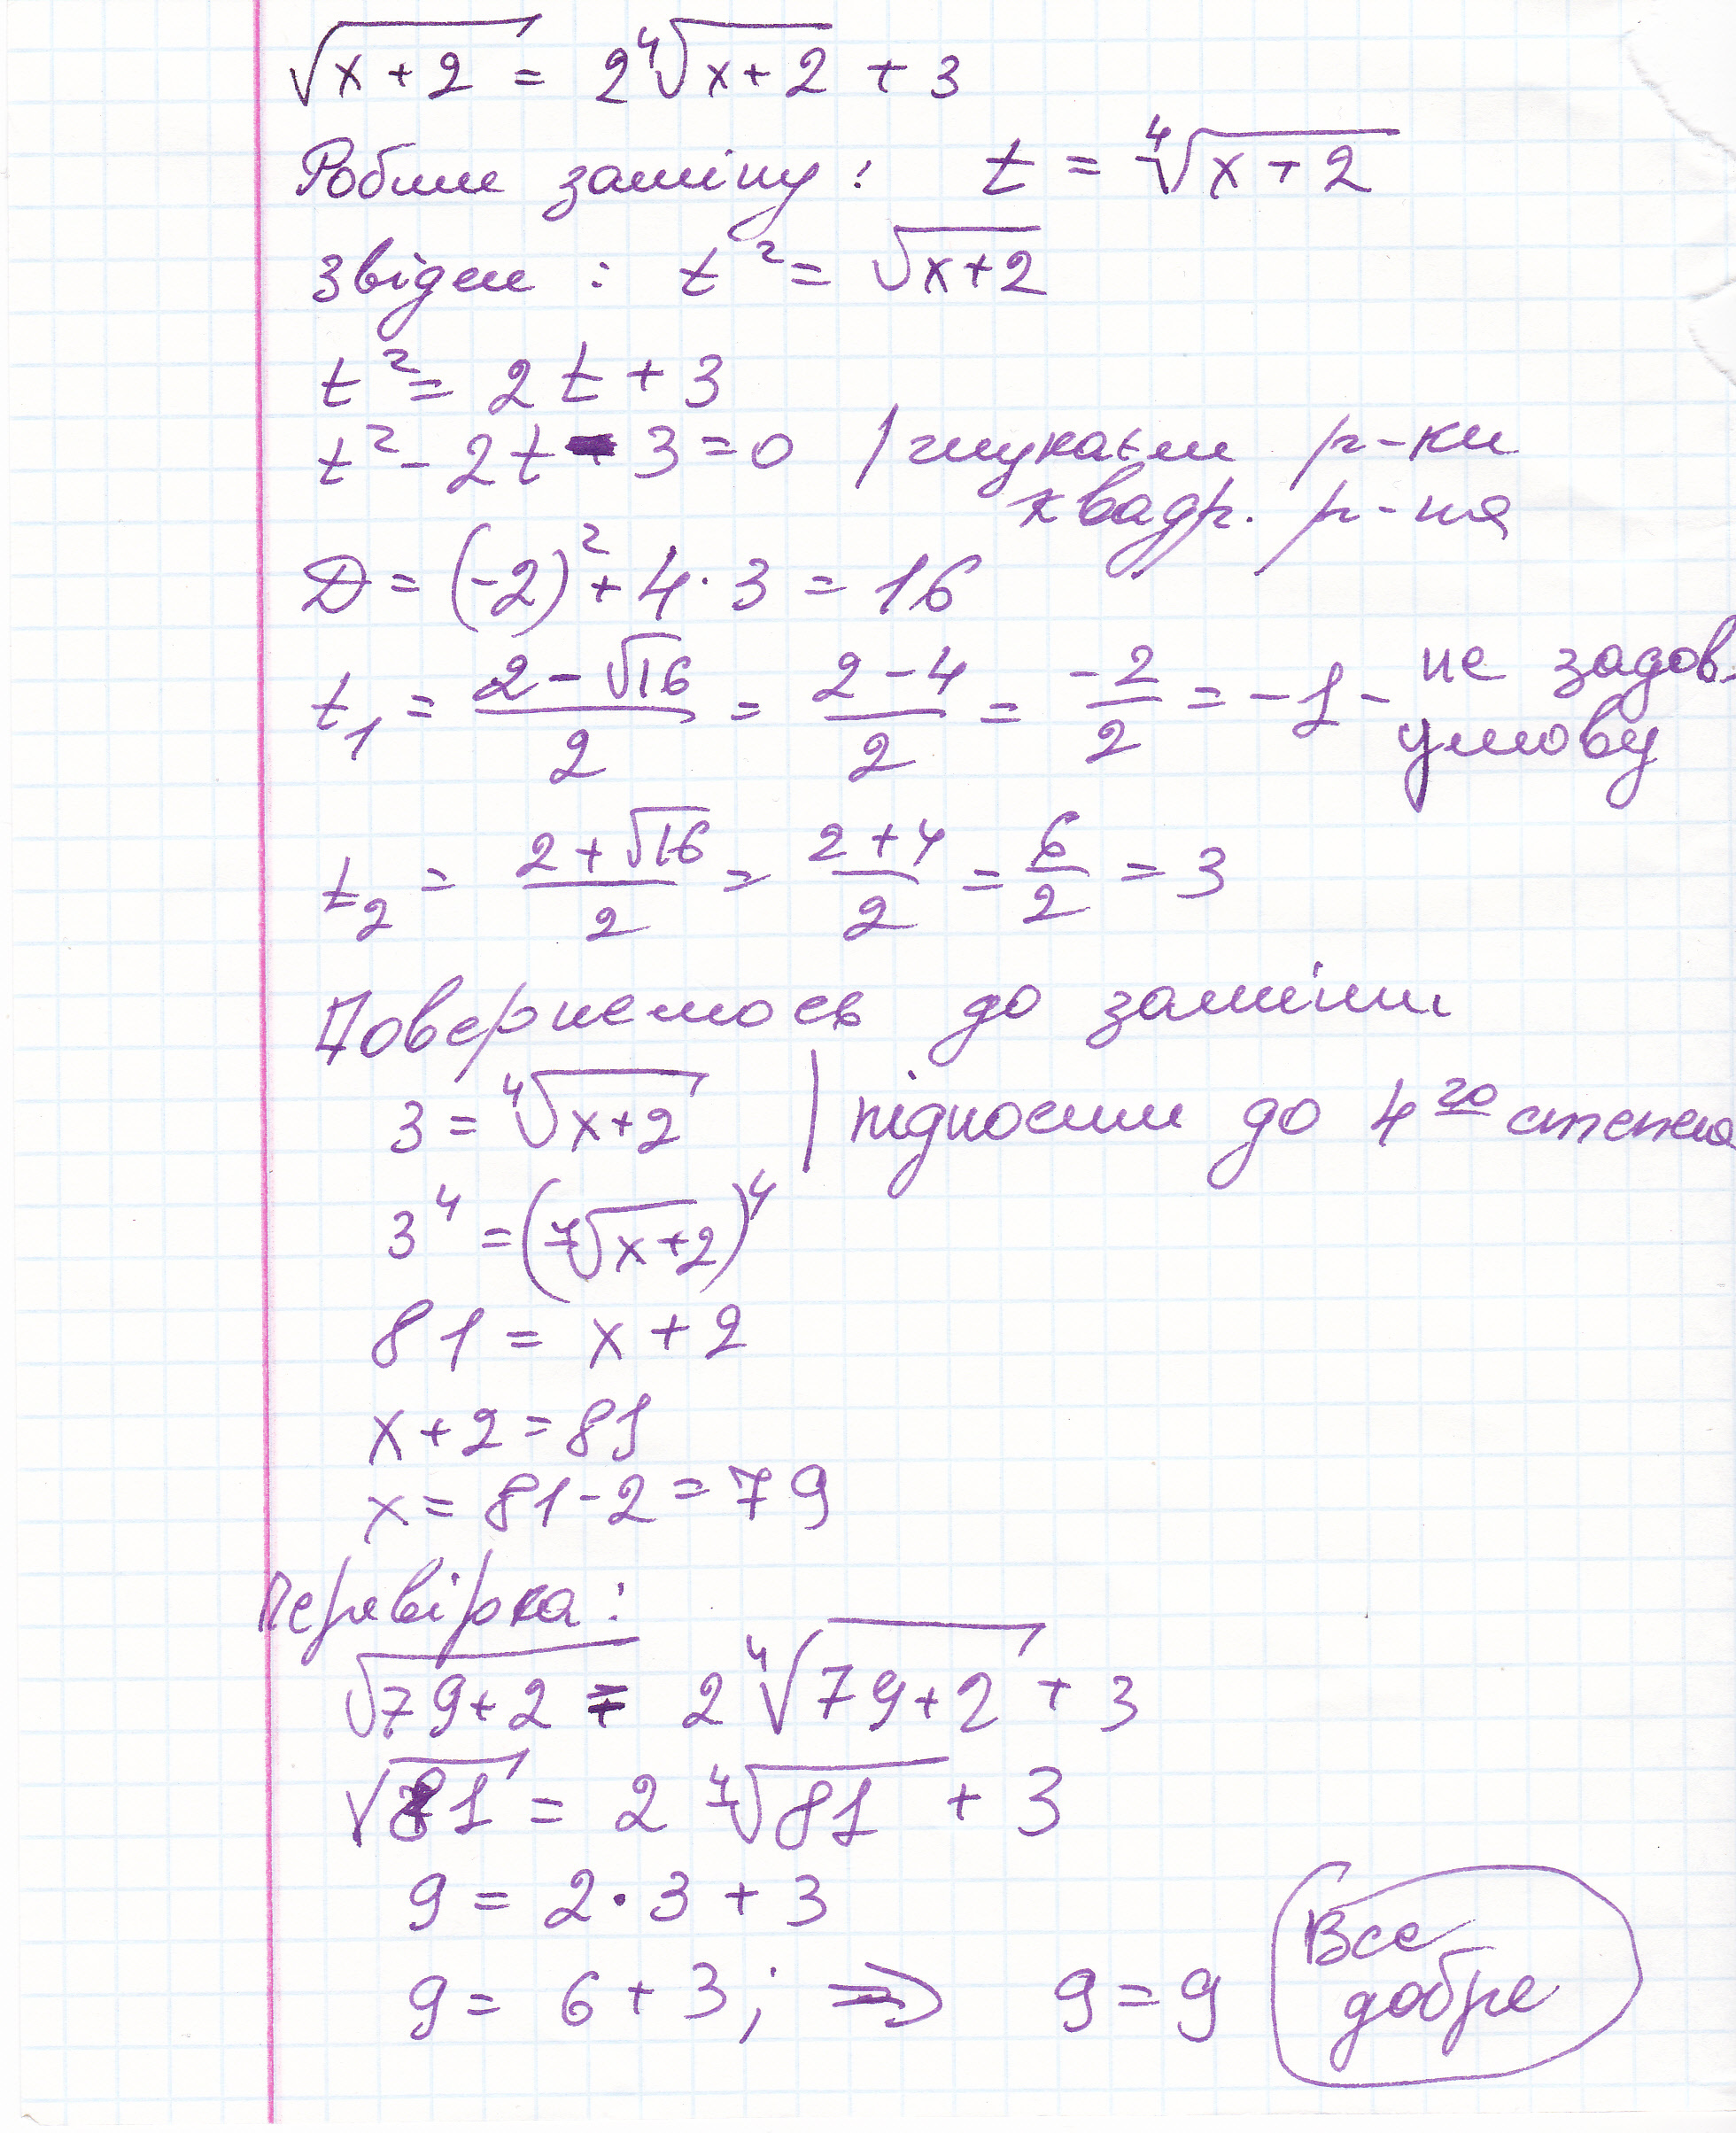 √(x+2) = 2∜(x+2) + 3
Робим заміну: t = ∜(x+2)
звідси: t² = √(x+2)
t² = 2t + 3
t² - 2t - 3 = 0 / шукаєм р-ки
квадр. р-ня
D = (-2)² + 4·3 = 16
t₁ = (2-√16)/2 = (2-4)/2 = -2/2 = -1 - не задов.
умову
t₂ = (2+√16)/2 = (2+4)/2 = 6/2 = 3
Повернемось до заміни
3 = ∜(x+2) | підносим до 4го степеня
3⁴ = (∜(x+2))⁴
81 = x + 2
x + 2 = 81
x = 81 - 2 = 79
перевірка:
√(79+2) = 2∜(79+2) + 3
√81 = 2∜81 + 3
9 = 2·3 + 3
9 = 6 + 3; ⇒ 9 = 9
Все
добре